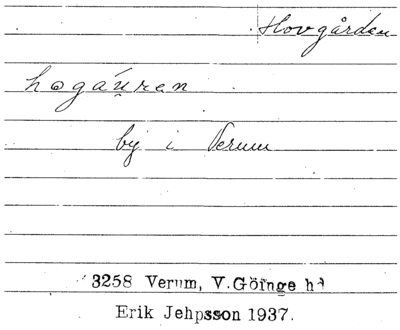 Hovgården
hogáu̯ren
by i Verum
3258 Verum, V. Göinge hd
Erik Jehpsson 1937.